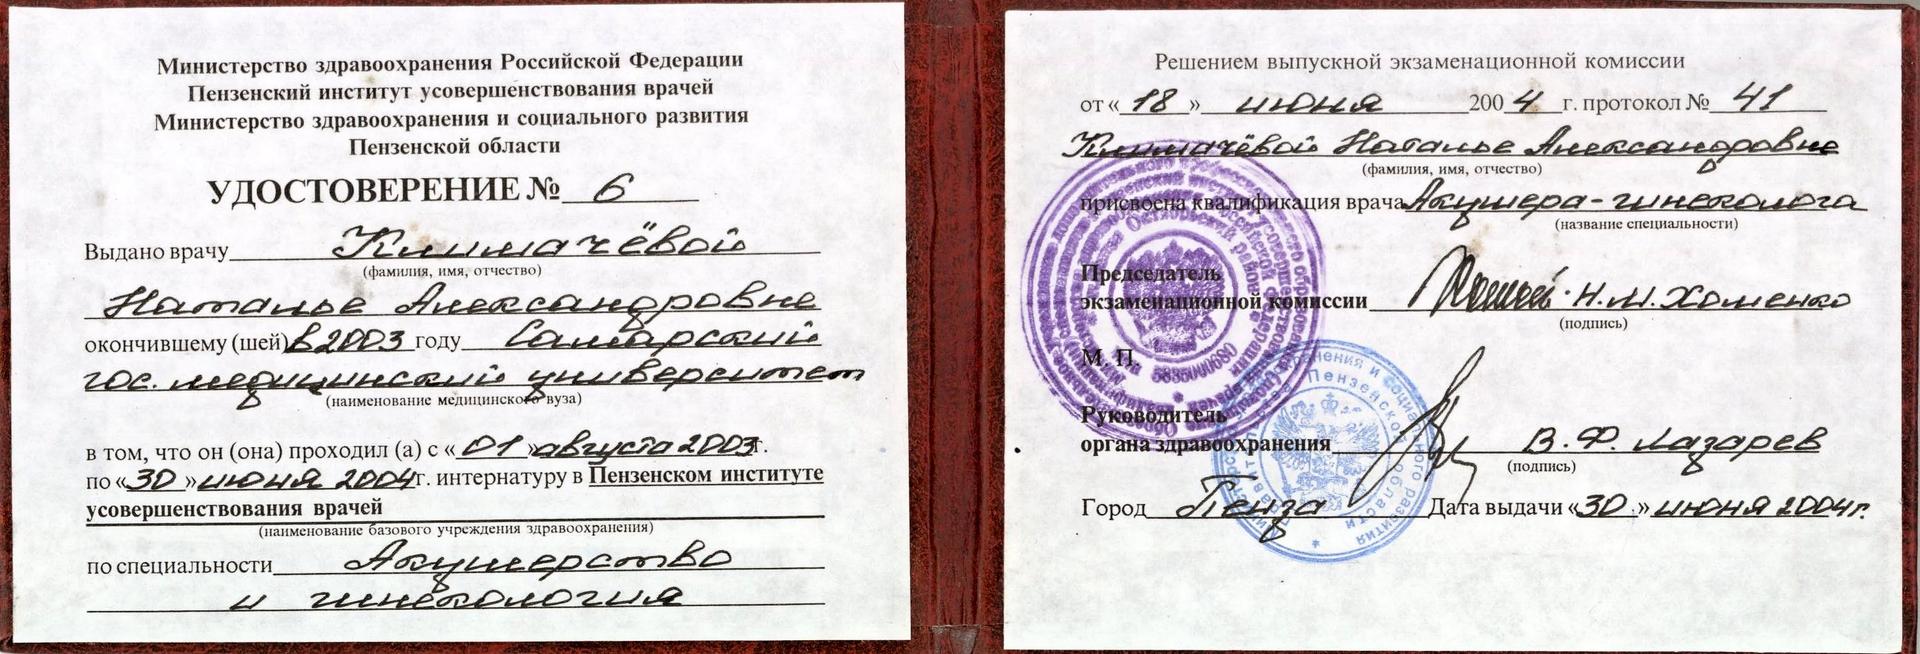 Министерство здравоохранения Российской Федерации
Пензенский институт усовершенствования врачей
Министерство здравоохранения и социального развития
Пензенской области
УДОСТОВЕРЕНИЕ № 6
Выдано врачу Климачёвой
(фамилия, имя, отчество)
Наталье Александровне
окончившему (шей) в 2003 году Самарский
гос. медицинский университет
(наименование медицинского вуза)
в том, что он (она) проходил (а) с «01» августа 2003г.
по «30» июня 2004г. интернатуру в Пензенском институте
усовершенствования врачей
(наименование базового учреждения здравоохранения)
по специальности Акушерство
и гинекология
Решением выпускной экзаменационной комиссии
от «18» июня 2004 г. протокол № 41
Климачёвой Наталье Александровне
(фамилия, имя, отчество)
присвоена квалификация врача Акушера-гинеколога
(название специальности)
Председатель
экзаменационной комиссии Н.М. Хоменко
(подпись)
М. П.
Руководитель
органа здравоохранения В.Ф. Лазарев
(подпись)
Город Пенза Дата выдачи «30» июня 2004г.